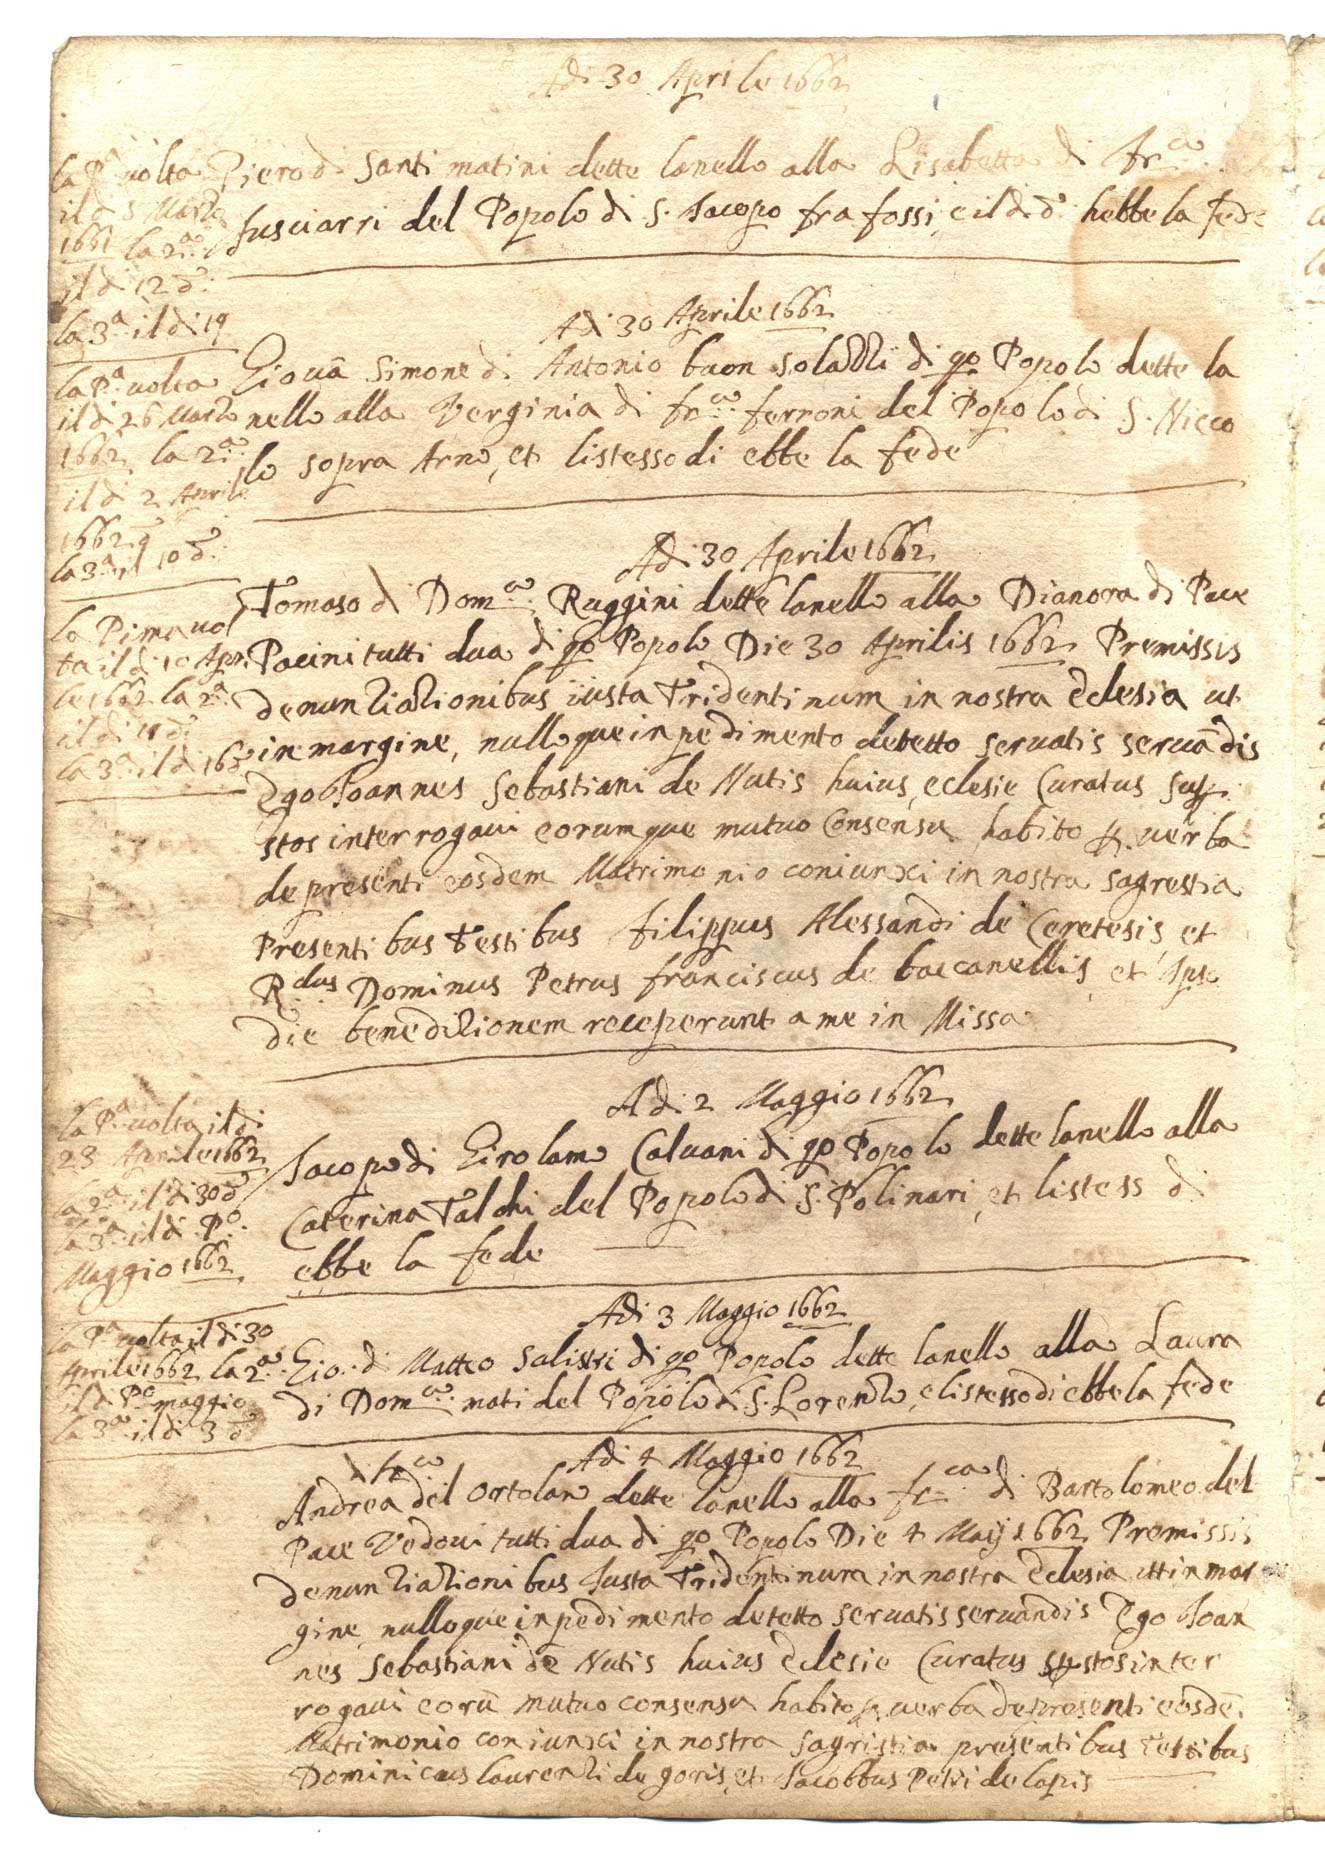 Adi 30 Aprile 1662
la Pa volta
il di 5 Marzo
1661 la 2a
il di 12 do
la 3a il di 19
Piero di Santi matini dette lanello alla Lisabetta di frco
fusciarri del Popolo di S. Iacopo fra fossi, e il di do hebbe la fede
Adi 30 Aprile 1662
la Pa volta
il di 26 Marzo
1662 la 2a
il di 2 Aprile
1662
la 3a il 10 do
Giovã Simone di Antonio buon solazzi di qo Popolo dette la
nello alla Verginia di frco ferroni del Popolo di S. Nicco
lo sopra Arno, et listesso di ebbe la fede
Adi 30 Aprile 1662
la Pima vol
ta il di 10 Apri
le 1662 la 2a
il di 11 do
la 3a il di 16 do
Tomaso di Domco Ruggini dette lanello alla Dianora di Pace
Pacini tutti dua di qo Popolo Die 30 Aprilis 1662 Premissis
denunziazionibus iusta Tridentinum in nostra Eclesia ut
in margine, nulloque inpedimento detetto servatis servãdis
Ego Ioannes Sebastiani de Nutis huius eclesie Curatus sup
stos interrogavi eorumque mutuo Consensu habito p. verba
de presenti eosdem Matrimonio coniunxi in nostra sagrestia
Presentibus Testibus filippus Alessandi de Ceretesis et
Rdus Dominus Petrus franciscus de baccanellis et Ipso
die benedizionem receperunt a me in Missa
Adi 2 Maggio 1662
la Pa volta il di
23 Aprile 1662
la 2a il di 30 do
la 3a il di Po
Maggio 1662
Iacopo di Girolamo Calvani di qo Popolo dette lanello alla
Caterina Talchi del Popolo di S. Polinari, et listess di
ebbe la fede
Adi 3 Maggio 1662
la Pa volta il di 30
Aprile 1662 la 2a
il di Po maggio
la 3a il di 3 do
Gio: di Matteo Salistri di qo Popolo dette lanello alla Laura
di Domco nati del Popolo di S. Lorenzo, e listesso di ebbe la fede
Adi 4 Maggio 1662
di frco
Andrea del ortolano dette lanello alla frca di Bartolomeo del
Pace Vedovi tutti dua di qo Popolo Die 4 Maij 1662 Premissis
denunziazionibus Iusta Tridentinum in nostra Eclesia utt in mar
gine, nulloque inpedimento detetto servatis servandis Ego Ioan
nes Sebastiani de Nutis huius Eclesie Curatus supstos inter
rogavi eorũ mutuo consensu habito p. verba de presenti eosdẽ
Matrimonio coniunxi in nostra sagristia presentibus testibus
Dominicus laurenzi de goris, et Iacobbus Petri de lapis